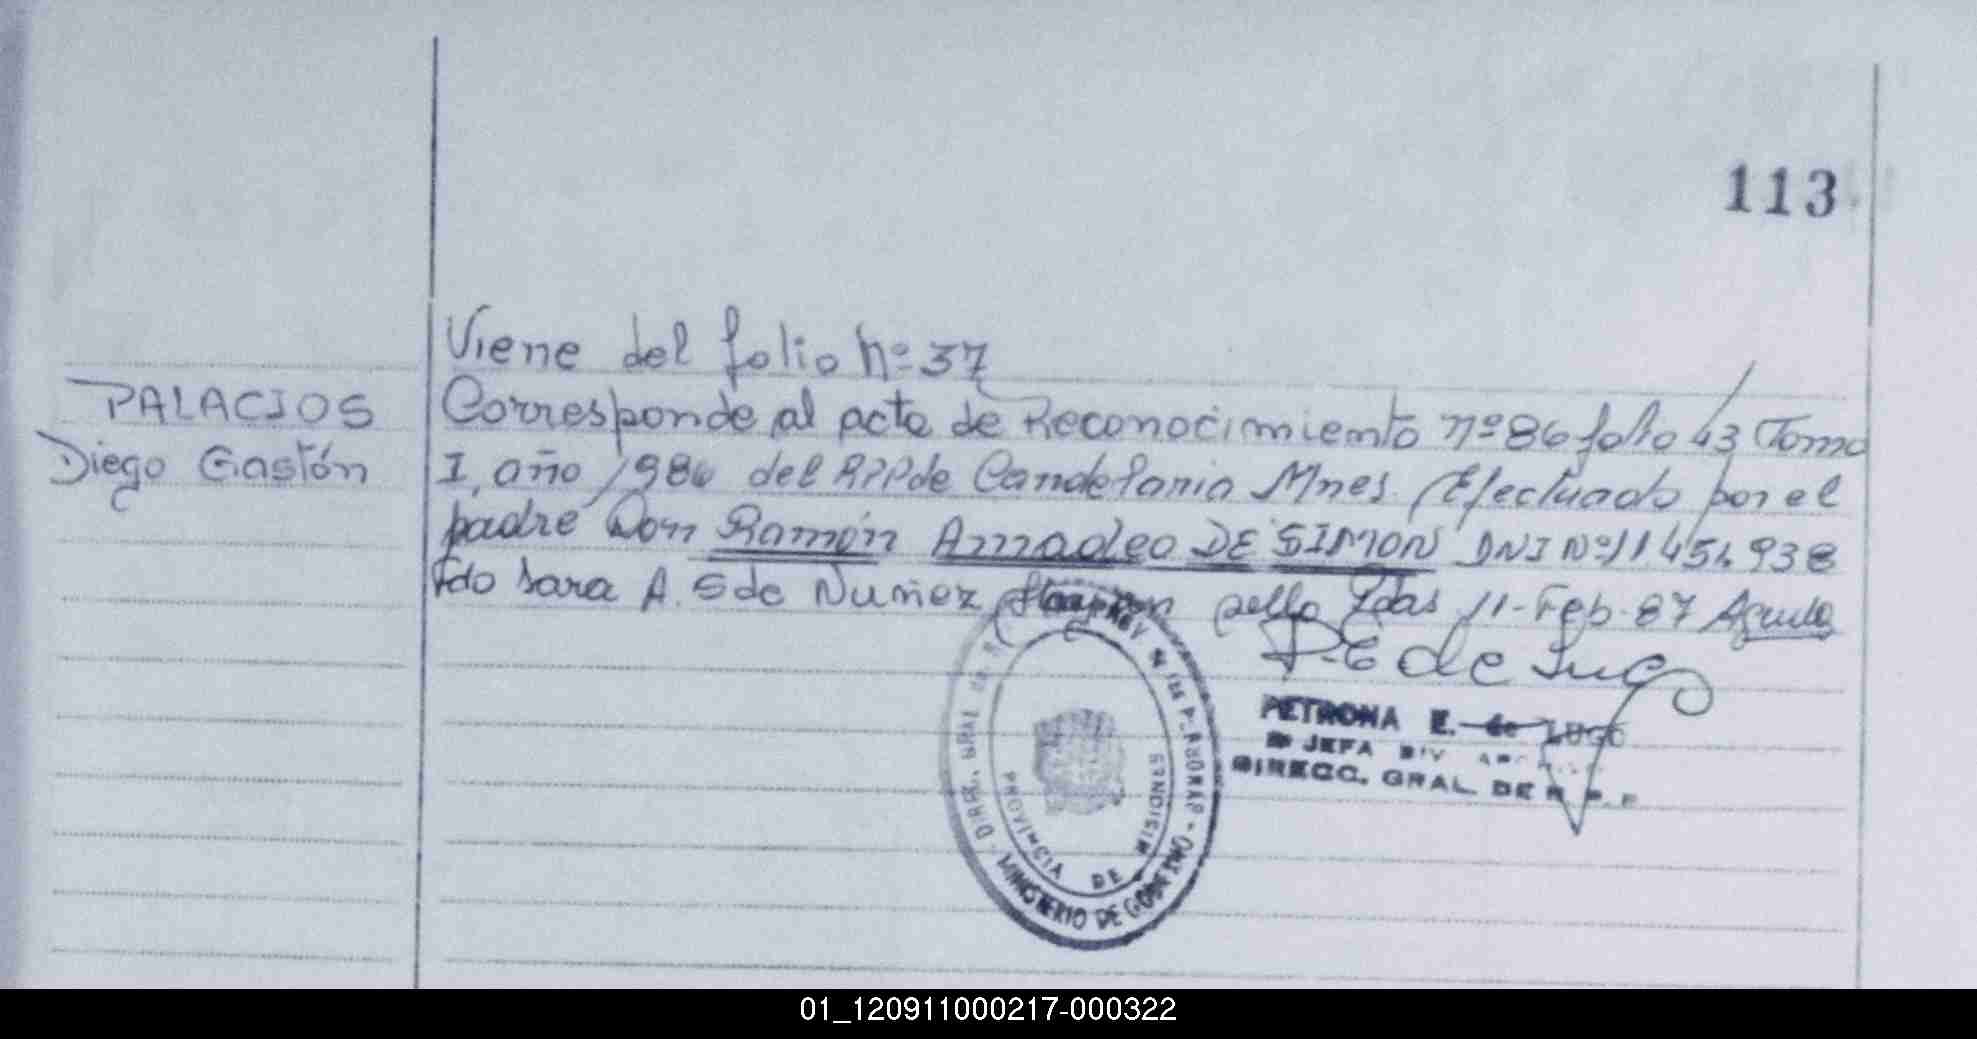 113
Viene del folio Nº 37
PALACIOS
Diego Gastón
Corresponde al acta de Reconocimiento nº 86 folio 43 Tomo
I, año 1986 del RPP de Candelaria Mnes. Efectuado por el
padre Don Ramón Amadeo DE SIMON DNI Nº 11.454.938
Fdo Sara A. S de Nuñez sello Pdas 11-Feb-87
P.E de Lugo
PETRONA E. de LUGO
JEFA DIV
DIRECC. GRAL. DE R.P.P
MINISTERIO DE GOBIERNO
PROVINCIA DE MISIONES
01_120911000217-000322